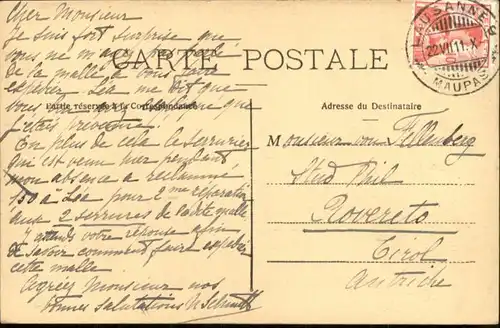 Cher Monsieur
Je suis fort surprise que
vous ne m'ayez pas parlé
de la malle à vous faire
expédier. Léa me dit que
vous
j'étais prévenue.
En plus de cela le serrurier
qui est venu hier pendant
mon absence a réclamé
1.50 à Léa pour 2me réparation
aux 2 serrures de cette malle
J'attends votre réponse afin
de savoir comment faire expédier
cette malle.
Agréez Monsieur nos
bonnes salutations
CARTE POSTALE
Partie réservée à la Correspondance
Adresse du Destinataire
LAUSANNE 6
22.VII.11.X
MAUPAS
Monsieur von Fellenberg
Stud Phil
Rovereto
Tirol
Autriche